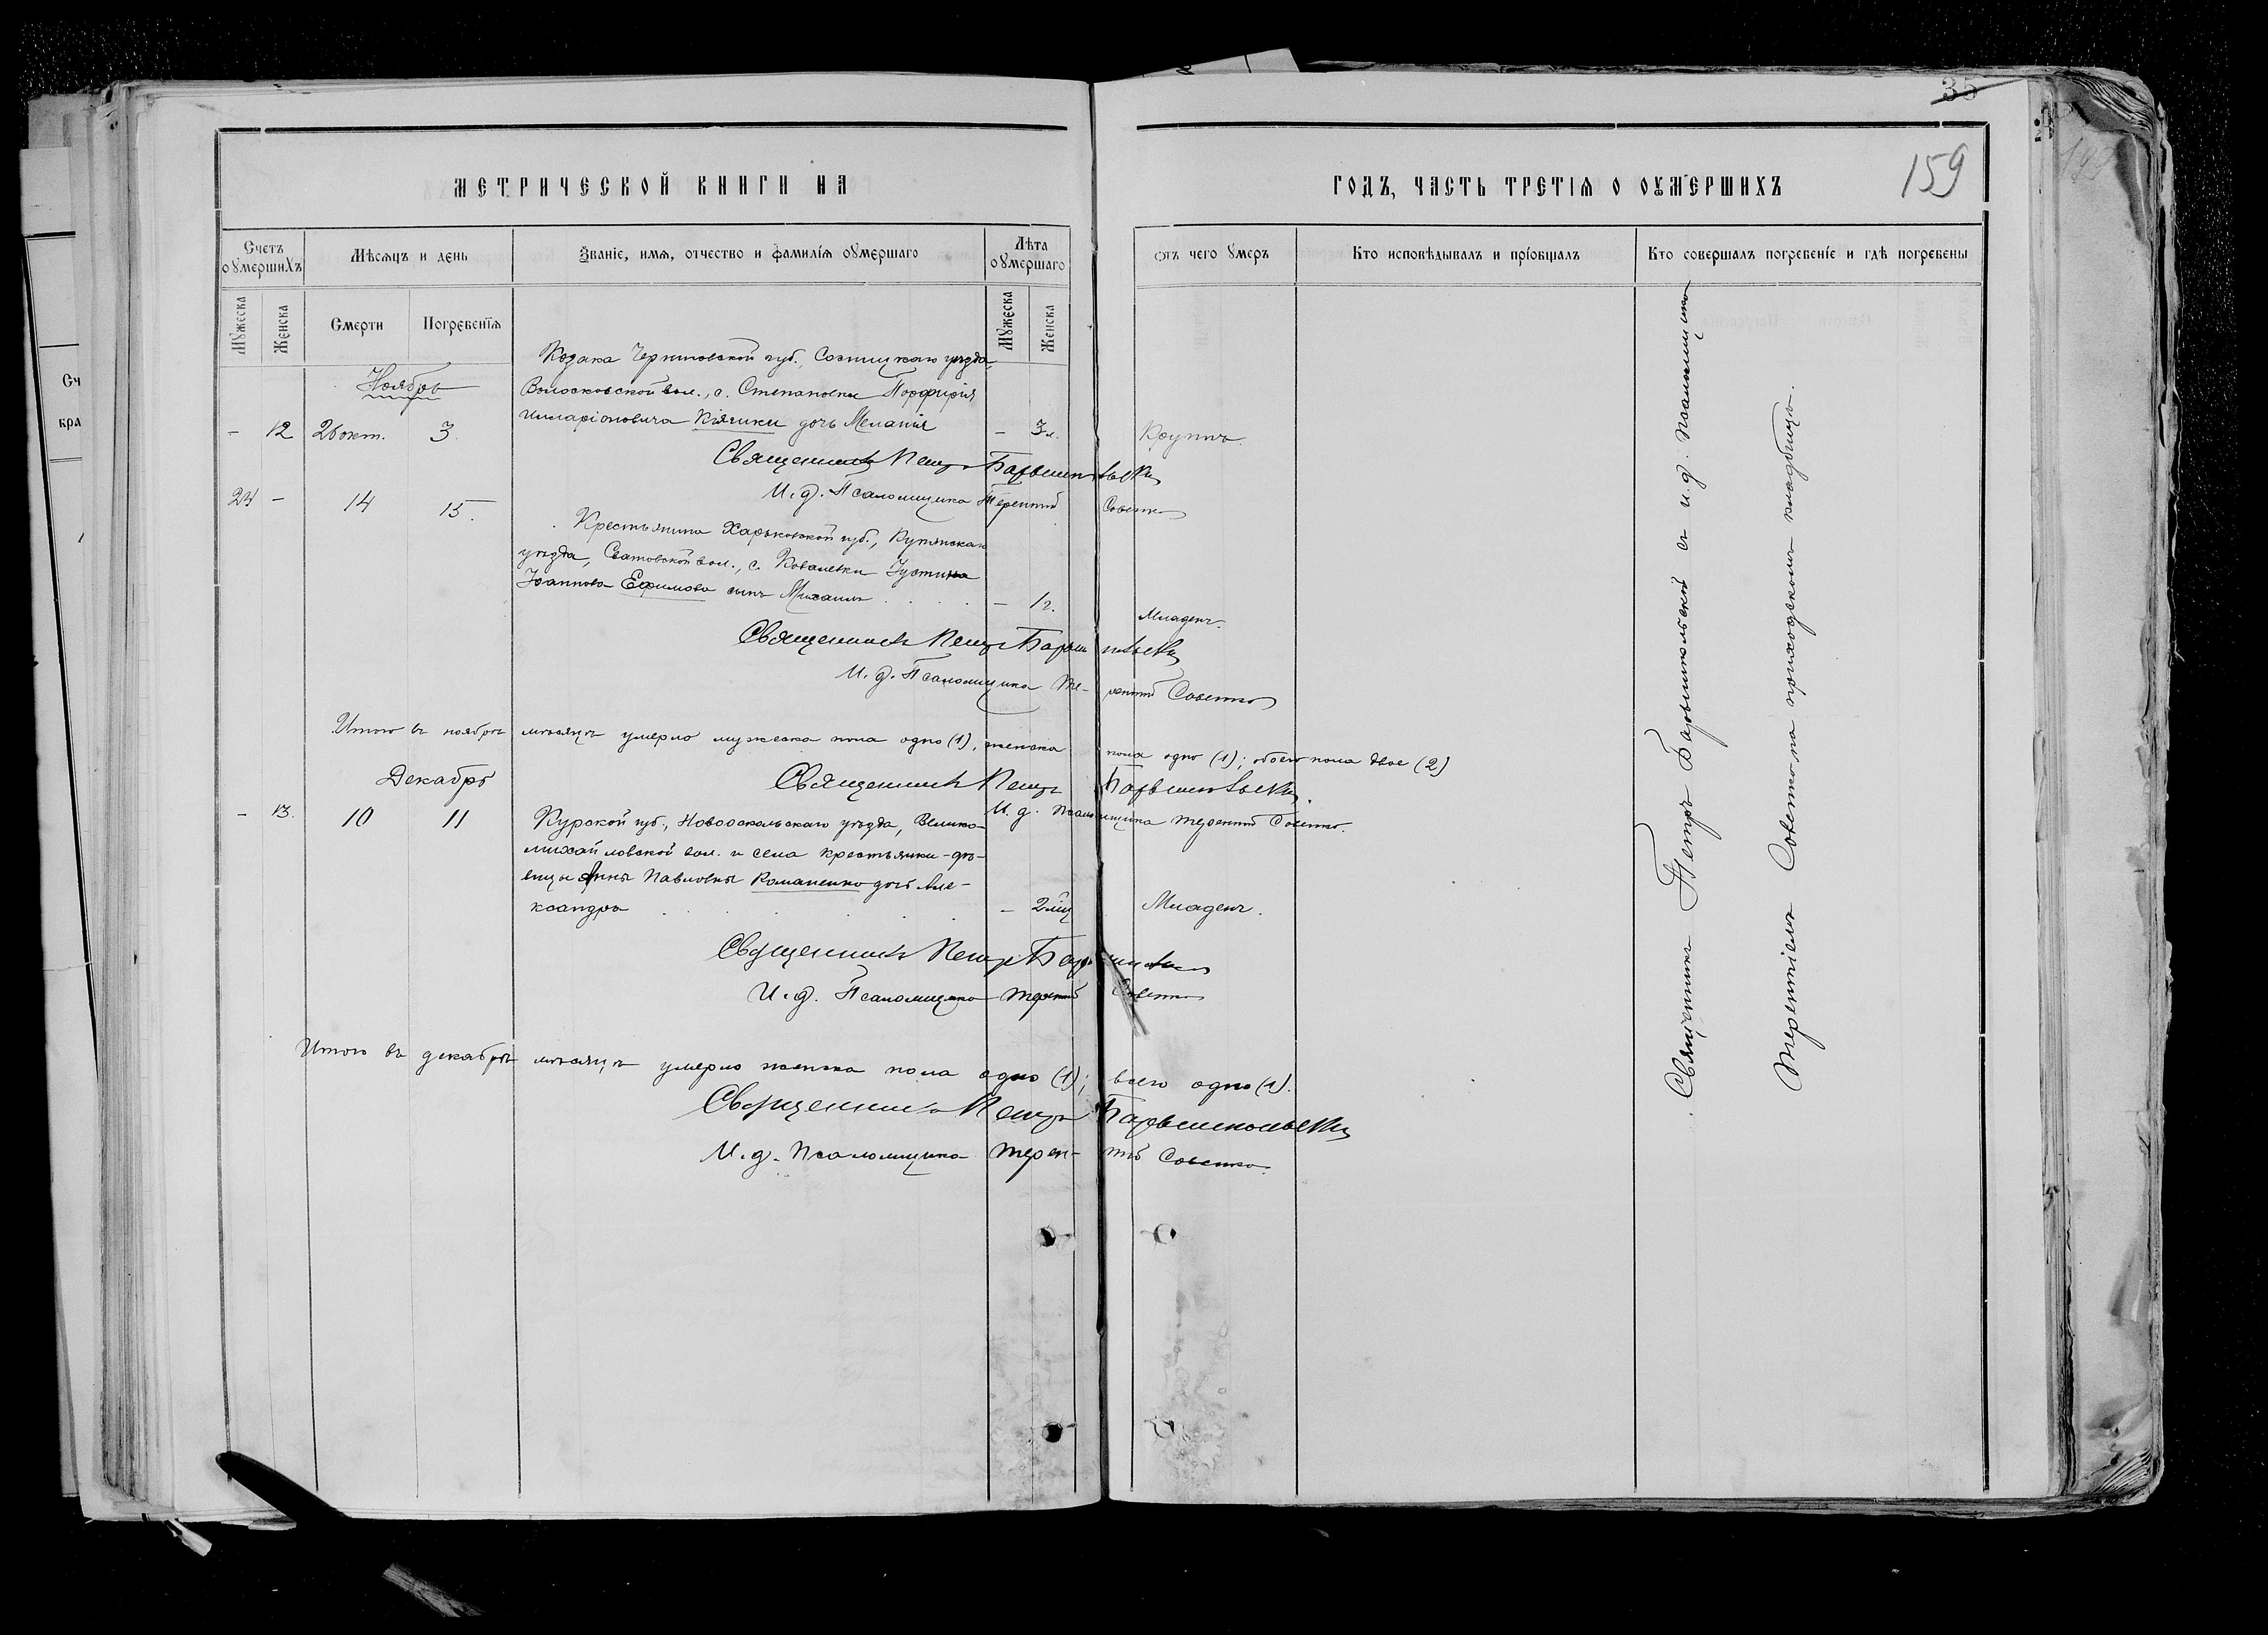 35
159
МЕТРИЧЕСКОЙ КНИГИ НА
ГОДЪ, ЧАСТЬ ТРЕТІЯ О ОУМЕРШИХЪ
Счетъ оумершихъ
Мѣсяцъ и день
Званіе, имя, отчество и фамилія оумершаго
Лѣта оумершаго
отъ чего умеръ
Кто исповѣдывалъ и пріобщалъ
Кто совершалъ погребеніе и гдѣ погребены
Мужеска
Женска
Смерти
Погребенія
Мужеска
Женска
Ноябрь
Козака Черниговской губ., Сосницкаго уѣзда,
Волосковской вол., с. Степановки Порфирія
- 12 26 окт. 3. Илларіоновича дочь Меланія - 3 л. Крупъ.
Священникъ Петръ
И. д. Псаломщика Терентій Совенко
24 - 14 15.
Крестьянина Харьковской губ., Купянскаго
уѣзда, Сватовской вол., с. Ковалевки Іустина
Іоаннова Ефимова сынъ Михаилъ - 1 г. Младенч.
Священникъ Петръ
И. д. Псаломщика Те- рентій Совенко
Итого въ ноябрѣ мѣсяцѣ умерло мужеска пола одно (1), женска пола одно (1); обоего пола двое (2)
Декабрь
Священникъ Петръ
И. д. Псаломщика Терентій Совенко.
- 13. 10 11 Курской губ., Новооскольскаго уѣзда, Велико-
михайловской вол. и села крестьянки-дѣ-
вицы Анны Павловны Романенко дочь Але-
ксандра - 2 мц Младенч.
Священникъ Петръ
И. д. Псаломщика Терентій Совенко
Итого въ декабрѣ мѣсяцѣ умерло женска пола одно (1); всего одно (1).
Священникъ Петръ
И. д. Псаломщика Терен- тій Совенко.
Священникъ Петръ съ и. д. псаломщика
Терентіемъ Совенко, на приходскомъ кладбищѣ.